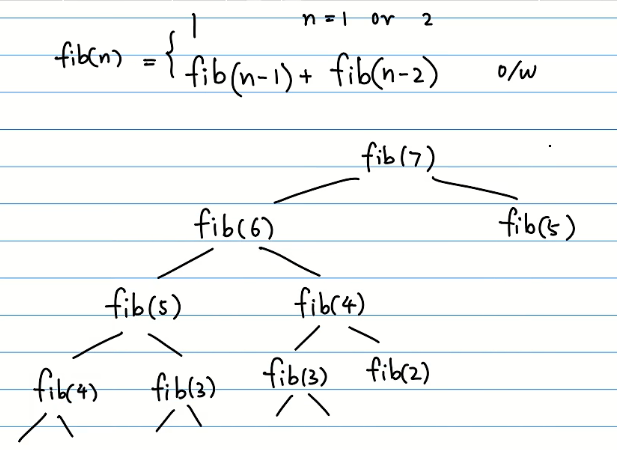 1 n = 1 or 2
fib(n) = {
fib(n-1) + fib(n-2) o/w
fib(7)
fib(6) fib(5)
fib(5) fib(4)
fib(4) fib(3) fib(3) fib(2)